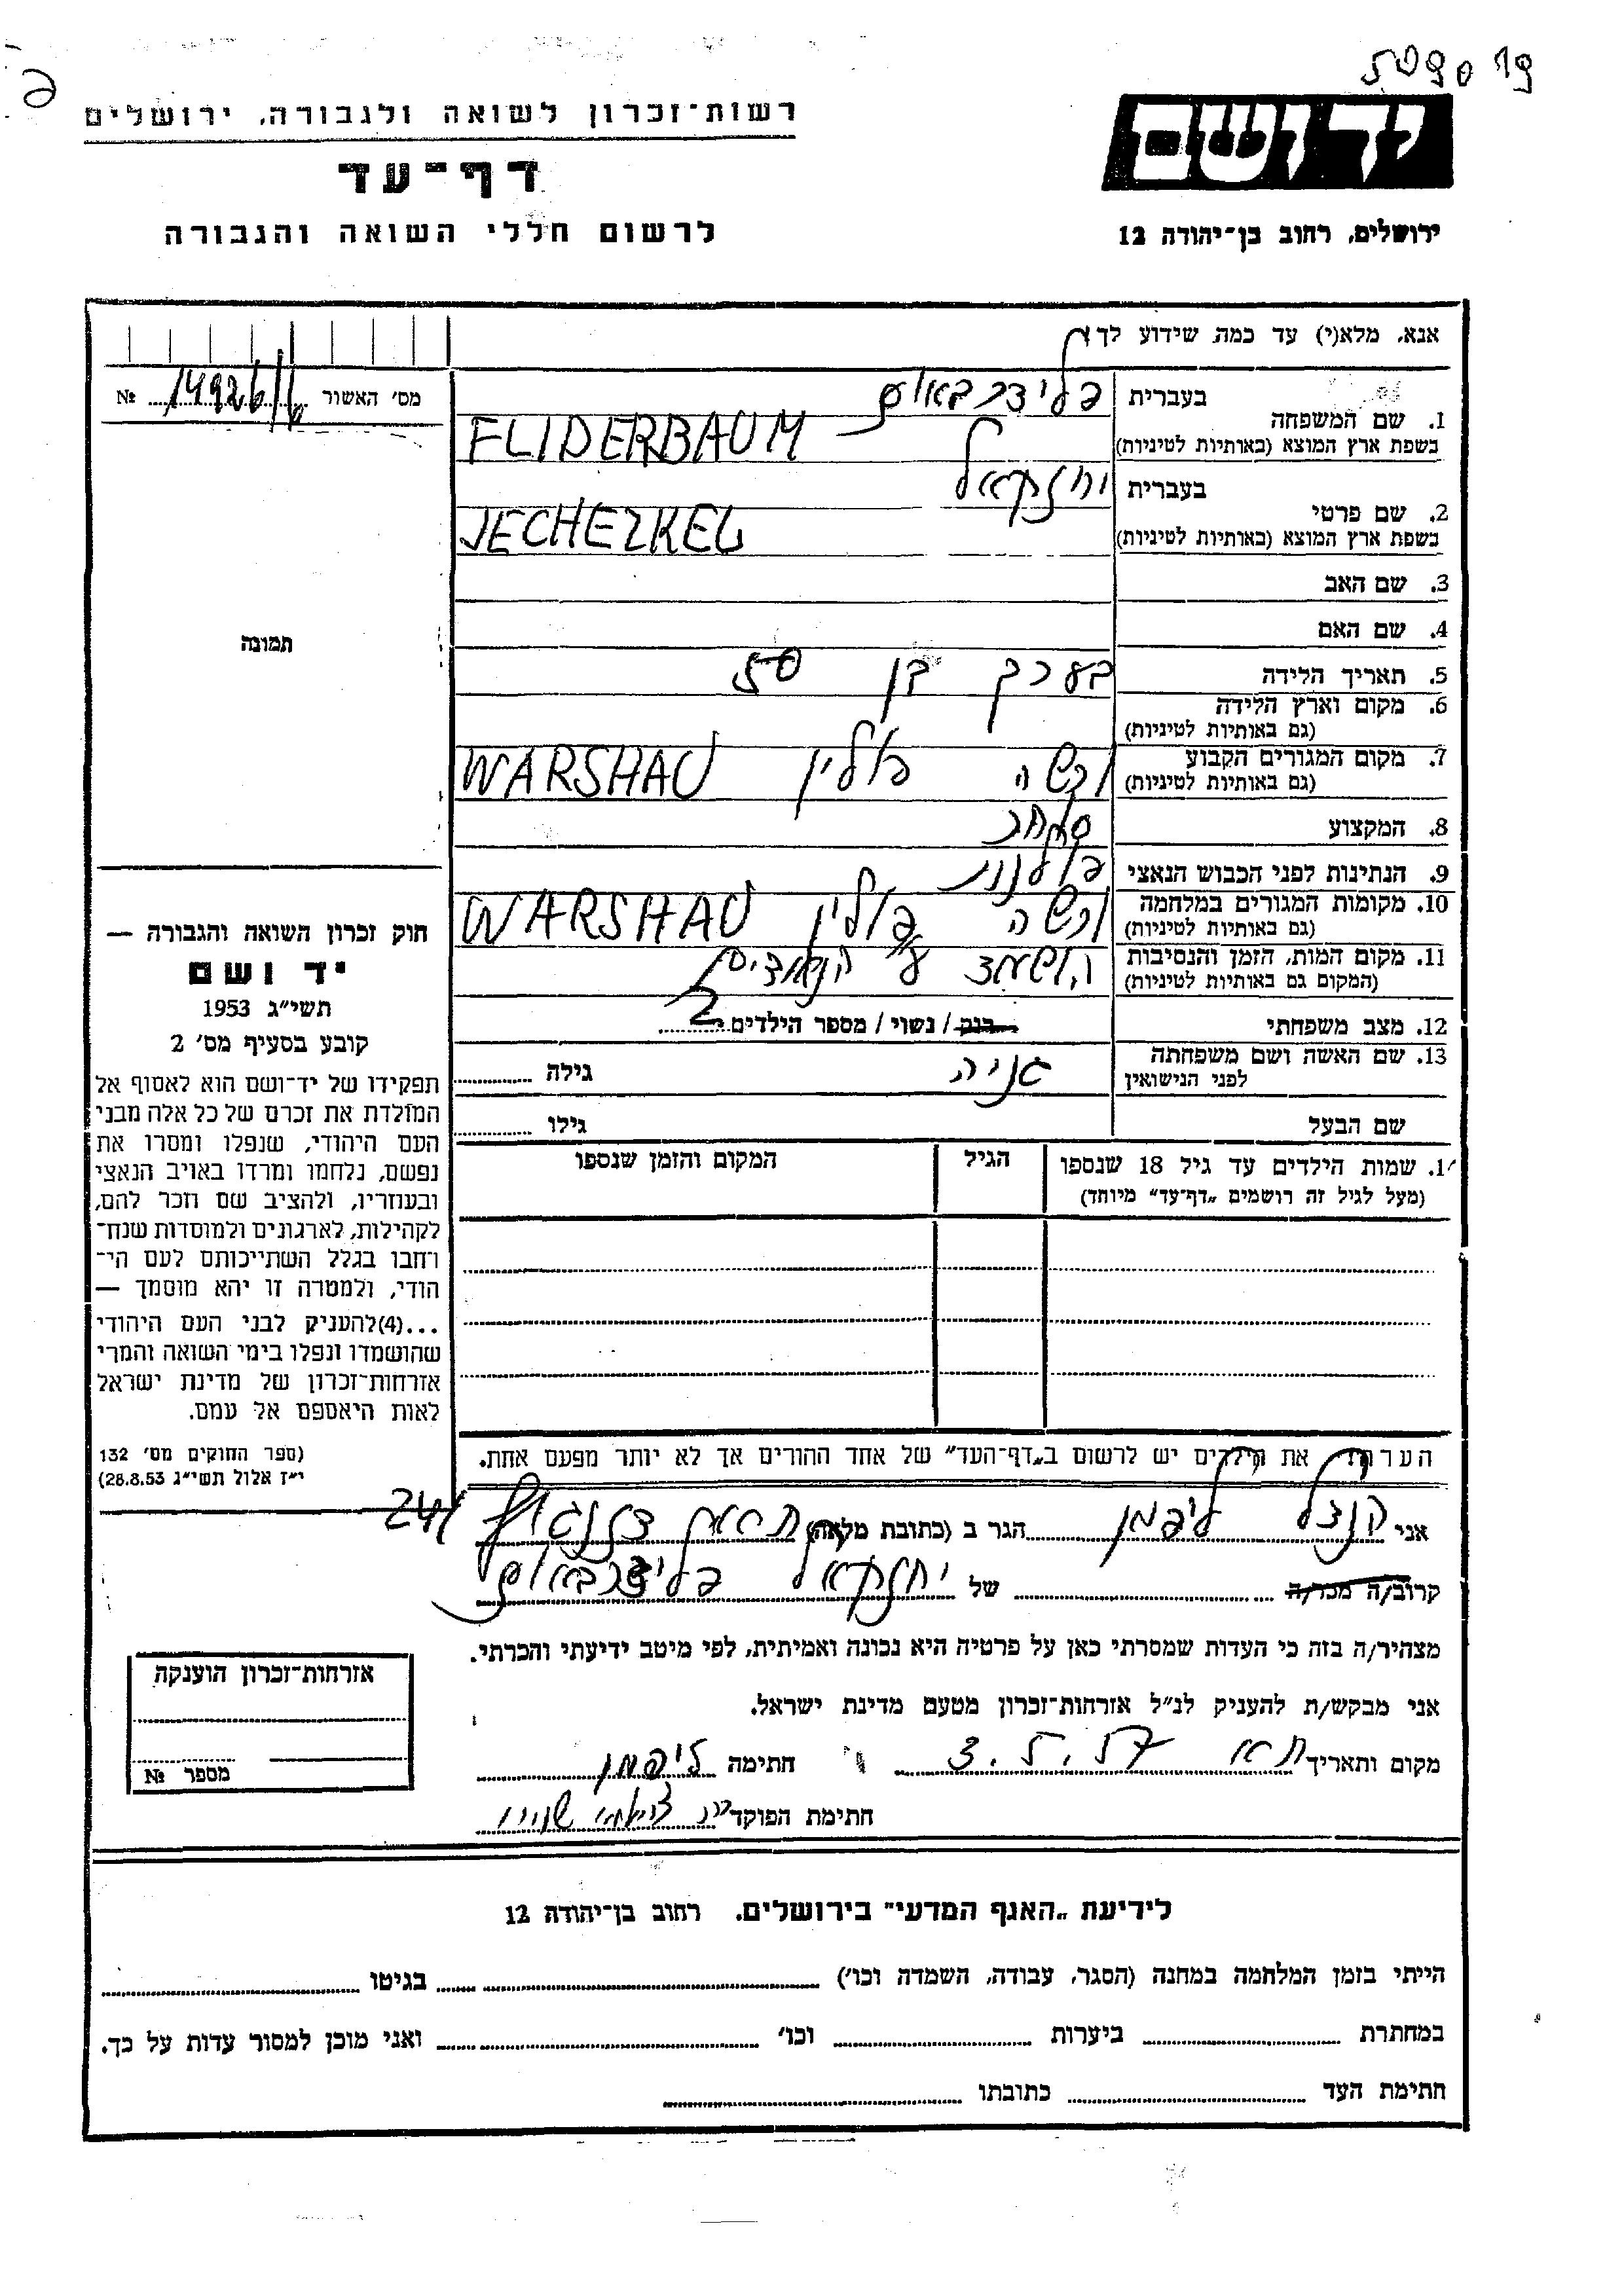 רשות-זכרון לשואה ולגבורה, ירושלים
דף-עד
לרשום חללי השואה והגבורה
יד ושם
ירושלים, רחוב בן-יהודה 12
אנא, מלא(י) עד כמה שידוע לך
מס׳ האשור 14926 №
1. שם המשפחה
בעברית פלידרבאום
בשפת ארץ המוצא (באותיות לטיניות) FLIDERBAUM
2. שם פרטי
בעברית יחזקאל
בשפת ארץ המוצא (באותיות לטיניות) JECHEZKEL
3. שם האב
4. שם האם
תמונה
5. תאריך הלידה בערך בן 50
6. מקום וארץ הלידה
(גם באותיות לטיניות)
7. מקום המגורים הקבוע ורשה פולין WARSHAU
(גם באותיות לטיניות)
8. המקצוע סוחר
9. הנתינות לפני הכבוש הנאצי פולנית
10. מקומות המגורים במלחמה ורשה פולין WARSHAU
(גם באותיות לטיניות)
11. מקום המות, הזמן והנסיבות הושמד ע״י הנאצים
(המקום גם באותיות לטיניות)
12. מצב משפחתי רווק / נשוי / מספר הילדים 2
13. שם האשה ושם משפחתה גניה גילה
לפני הנישואין
שם הבעל גילו
1. שמות הילדים עד גיל 18 שנספו הגיל המקום והזמן שנספו
(מעל לגיל זה רושמים „דף-עד״ מיוחד)
חוק זכרון השואה והגבורה —
יד ושם
תשי״ג 1953
קובע בסעיף מס׳ 2
תפקידו של יד-ושם הוא לאסוף אל
המולדת את זכרם של כל אלה מבני
העם היהודי, שנפלו ומסרו את
נפשם, נלחמו ומרדו באויב הנאצי
ובעוזריו, ולהציב שם וזכר להם,
לקהילות, לארגונים ולמוסדות שנח-
רחבו בגלל השתייכותם לעם הי-
הודי, ולמטרה זו יהא מוסמך —
...(4)להעניק לבני העם היהודי
שהושמדו ונפלו בימי השואה והמרי
אזרחות-זכרון של מדינת ישראל
לאות היאספם אל עמם.
(ספר החוקים מס׳ 132
י״ז אלול תשי״ג 28.8.53)
הערה את הילדים יש לרשום ב„דף-העד״ של אחד ההורים אך לא יותר מפעם אחת.
אני הנצל ליפמן הגר ב (כתובת מלאה) 241
קרוב/ה מכר/ה של יחזקאל פלידרבאום
מצהיר/ה בזה כי העדות שמסרתי כאן על פרטיה היא נכונה ואמיתית, לפי מיטב ידיעתי והכרתי.
אני מבקש/ת להעניק לנ״ל אזרחות-זכרון מטעם מדינת ישראל.
מקום ותאריך ת״א 3.5.57 חתימה ליפמן
חתימת הפוקד
אזרחות-זכרון הוענקה
מספר №
לידיעת „האגף המדעי״ בירושלים. רחוב בן-יהודה 12
הייתי בזמן המלחמה במחנה (הסגר, עבודה, השמדה וכו׳) בגיטו
במחתרת ביערות וכו׳ ואני מוכן למסור עדות על כך.
חתימת העד כתובתו